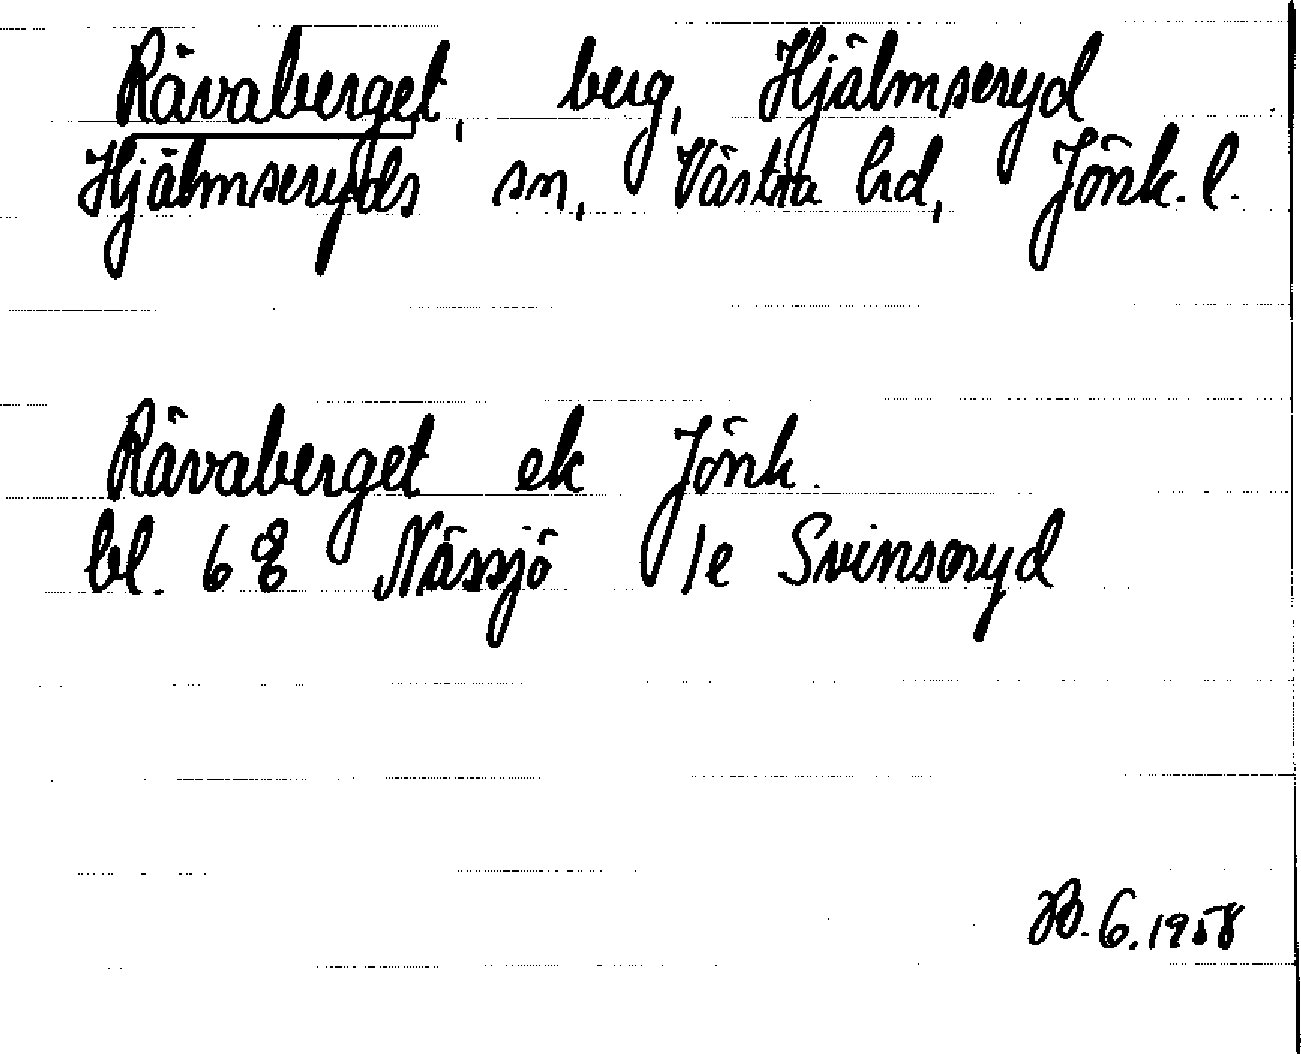 Rävaberget, berg, Hjälmseryd
Hjälmseryds sn, Västra hd, Jönk. l.
Rävaberget ek Jönk.
bl. 68 Nässjö 1e Svinsoryd
6. 1958